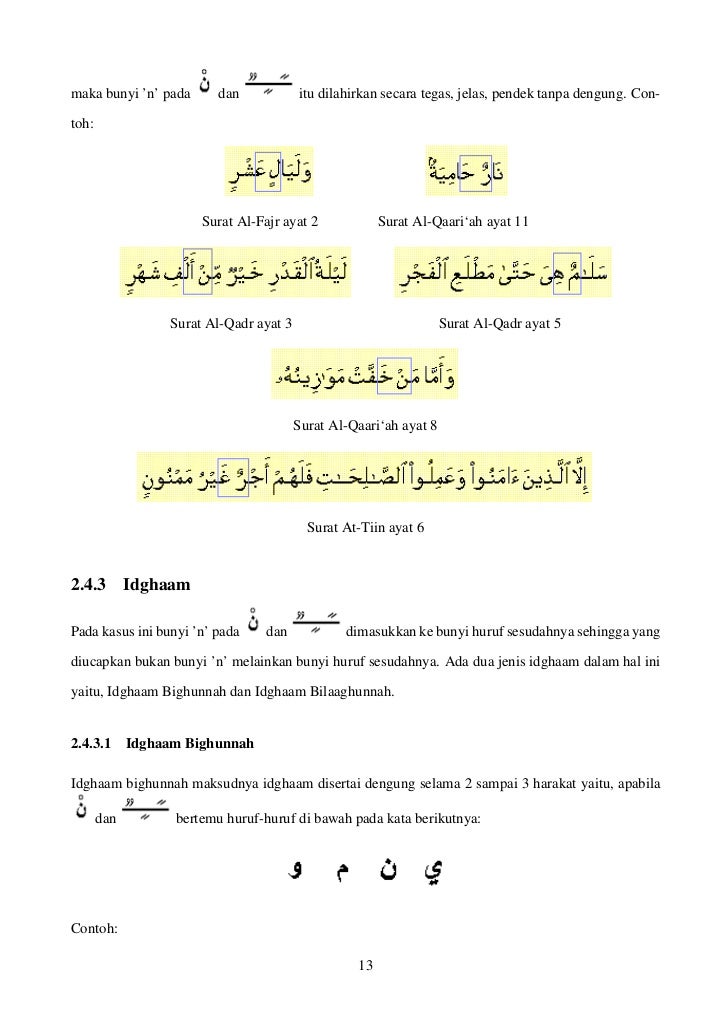 maka bunyi ’n’ pada نْ dan ـٌـٍـً itu dilahirkan secara tegas, jelas, pendek tanpa dengung. Con-
toh:
وَلَيَالٍ عَشْرٍ نَارٌ حَامِيَةٌۢ
Surat Al-Fajr ayat 2 Surat Al-Qaari‘ah ayat 11
لَيْلَةُ ٱلْقَدْرِ خَيْرٌ مِّنْ أَلْفِ شَهْرٍ سَلَـٰمٌ هِىَ حَتَّىٰ مَطْلَعِ ٱلْفَجْرِ
Surat Al-Qadr ayat 3 Surat Al-Qadr ayat 5
وَأَمَّا مَنْ خَفَّتْ مَوَٰزِينُهُۥ
Surat Al-Qaari‘ah ayat 8
إِلَّا ٱلَّذِينَ ءَامَنُوا۟ وَعَمِلُوا۟ ٱلصَّـٰلِحَـٰتِ فَلَهُمْ أَجْرٌ غَيْرُ مَمْنُونٍ
Surat At-Tiin ayat 6
2.4.3 Idghaam
Pada kasus ini bunyi ’n’ pada نْ dan ـٌـٍـً dimasukkan ke bunyi huruf sesudahnya sehingga yang
diucapkan bukan bunyi ’n’ melainkan bunyi huruf sesudahnya. Ada dua jenis idghaam dalam hal ini
yaitu, Idghaam Bighunnah dan Idghaam Bilaaghunnah.
2.4.3.1 Idghaam Bighunnah
Idghaam bighunnah maksudnya idghaam disertai dengung selama 2 sampai 3 harakat yaitu, apabila
نْ dan ـٌـٍـً bertemu huruf-huruf di bawah pada kata berikutnya:
ي ن م و
Contoh:
13